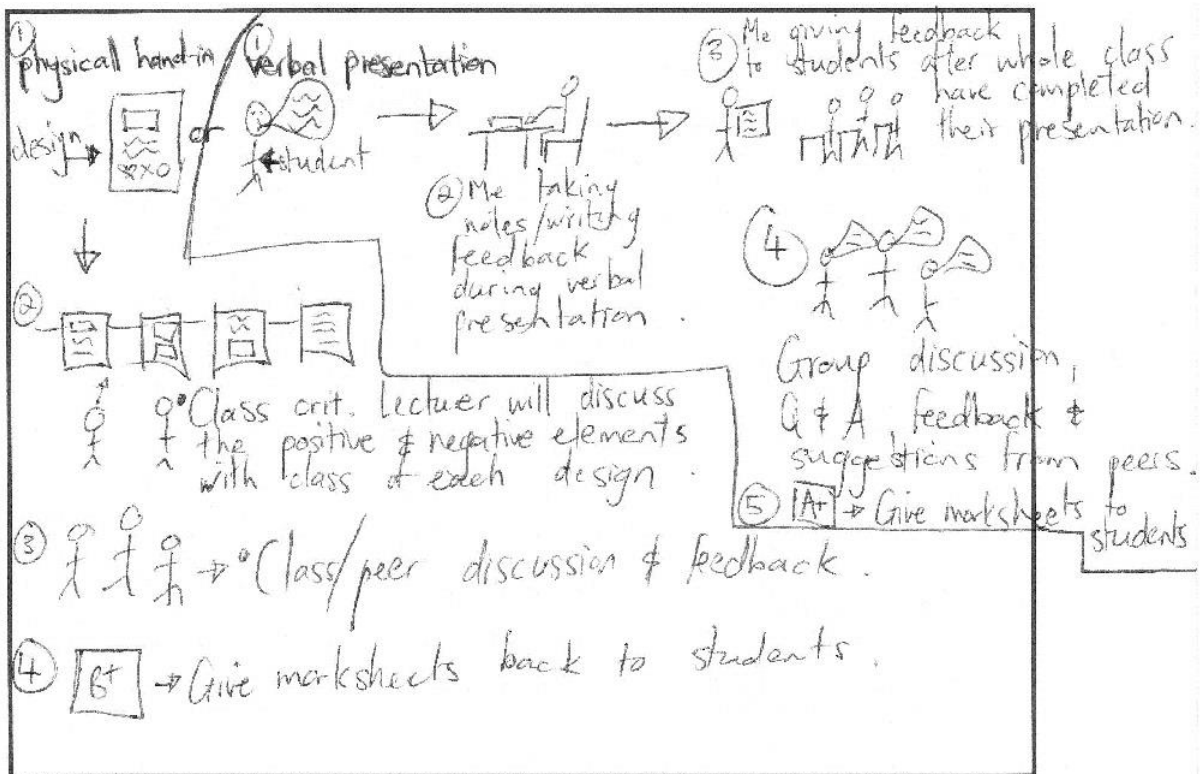 ①
physicall hand-in
design
or
①
verbal presentation
student
② Me taking
notes/writing
feedback
during verbal
presentation.
③ Me giving feedback
to students after whole class
have completed
their presentation.
④
Group discussion,
Q & A, feedback &
suggestions from peers.
⑤ A+ → Give marksheets to
students
②
• Class crit. Lectuer will discuss
the positive & negative elements
with class of each design.
③ → • Class/peer discussion & feedback.
④ B+ → Give marksheets back to students.